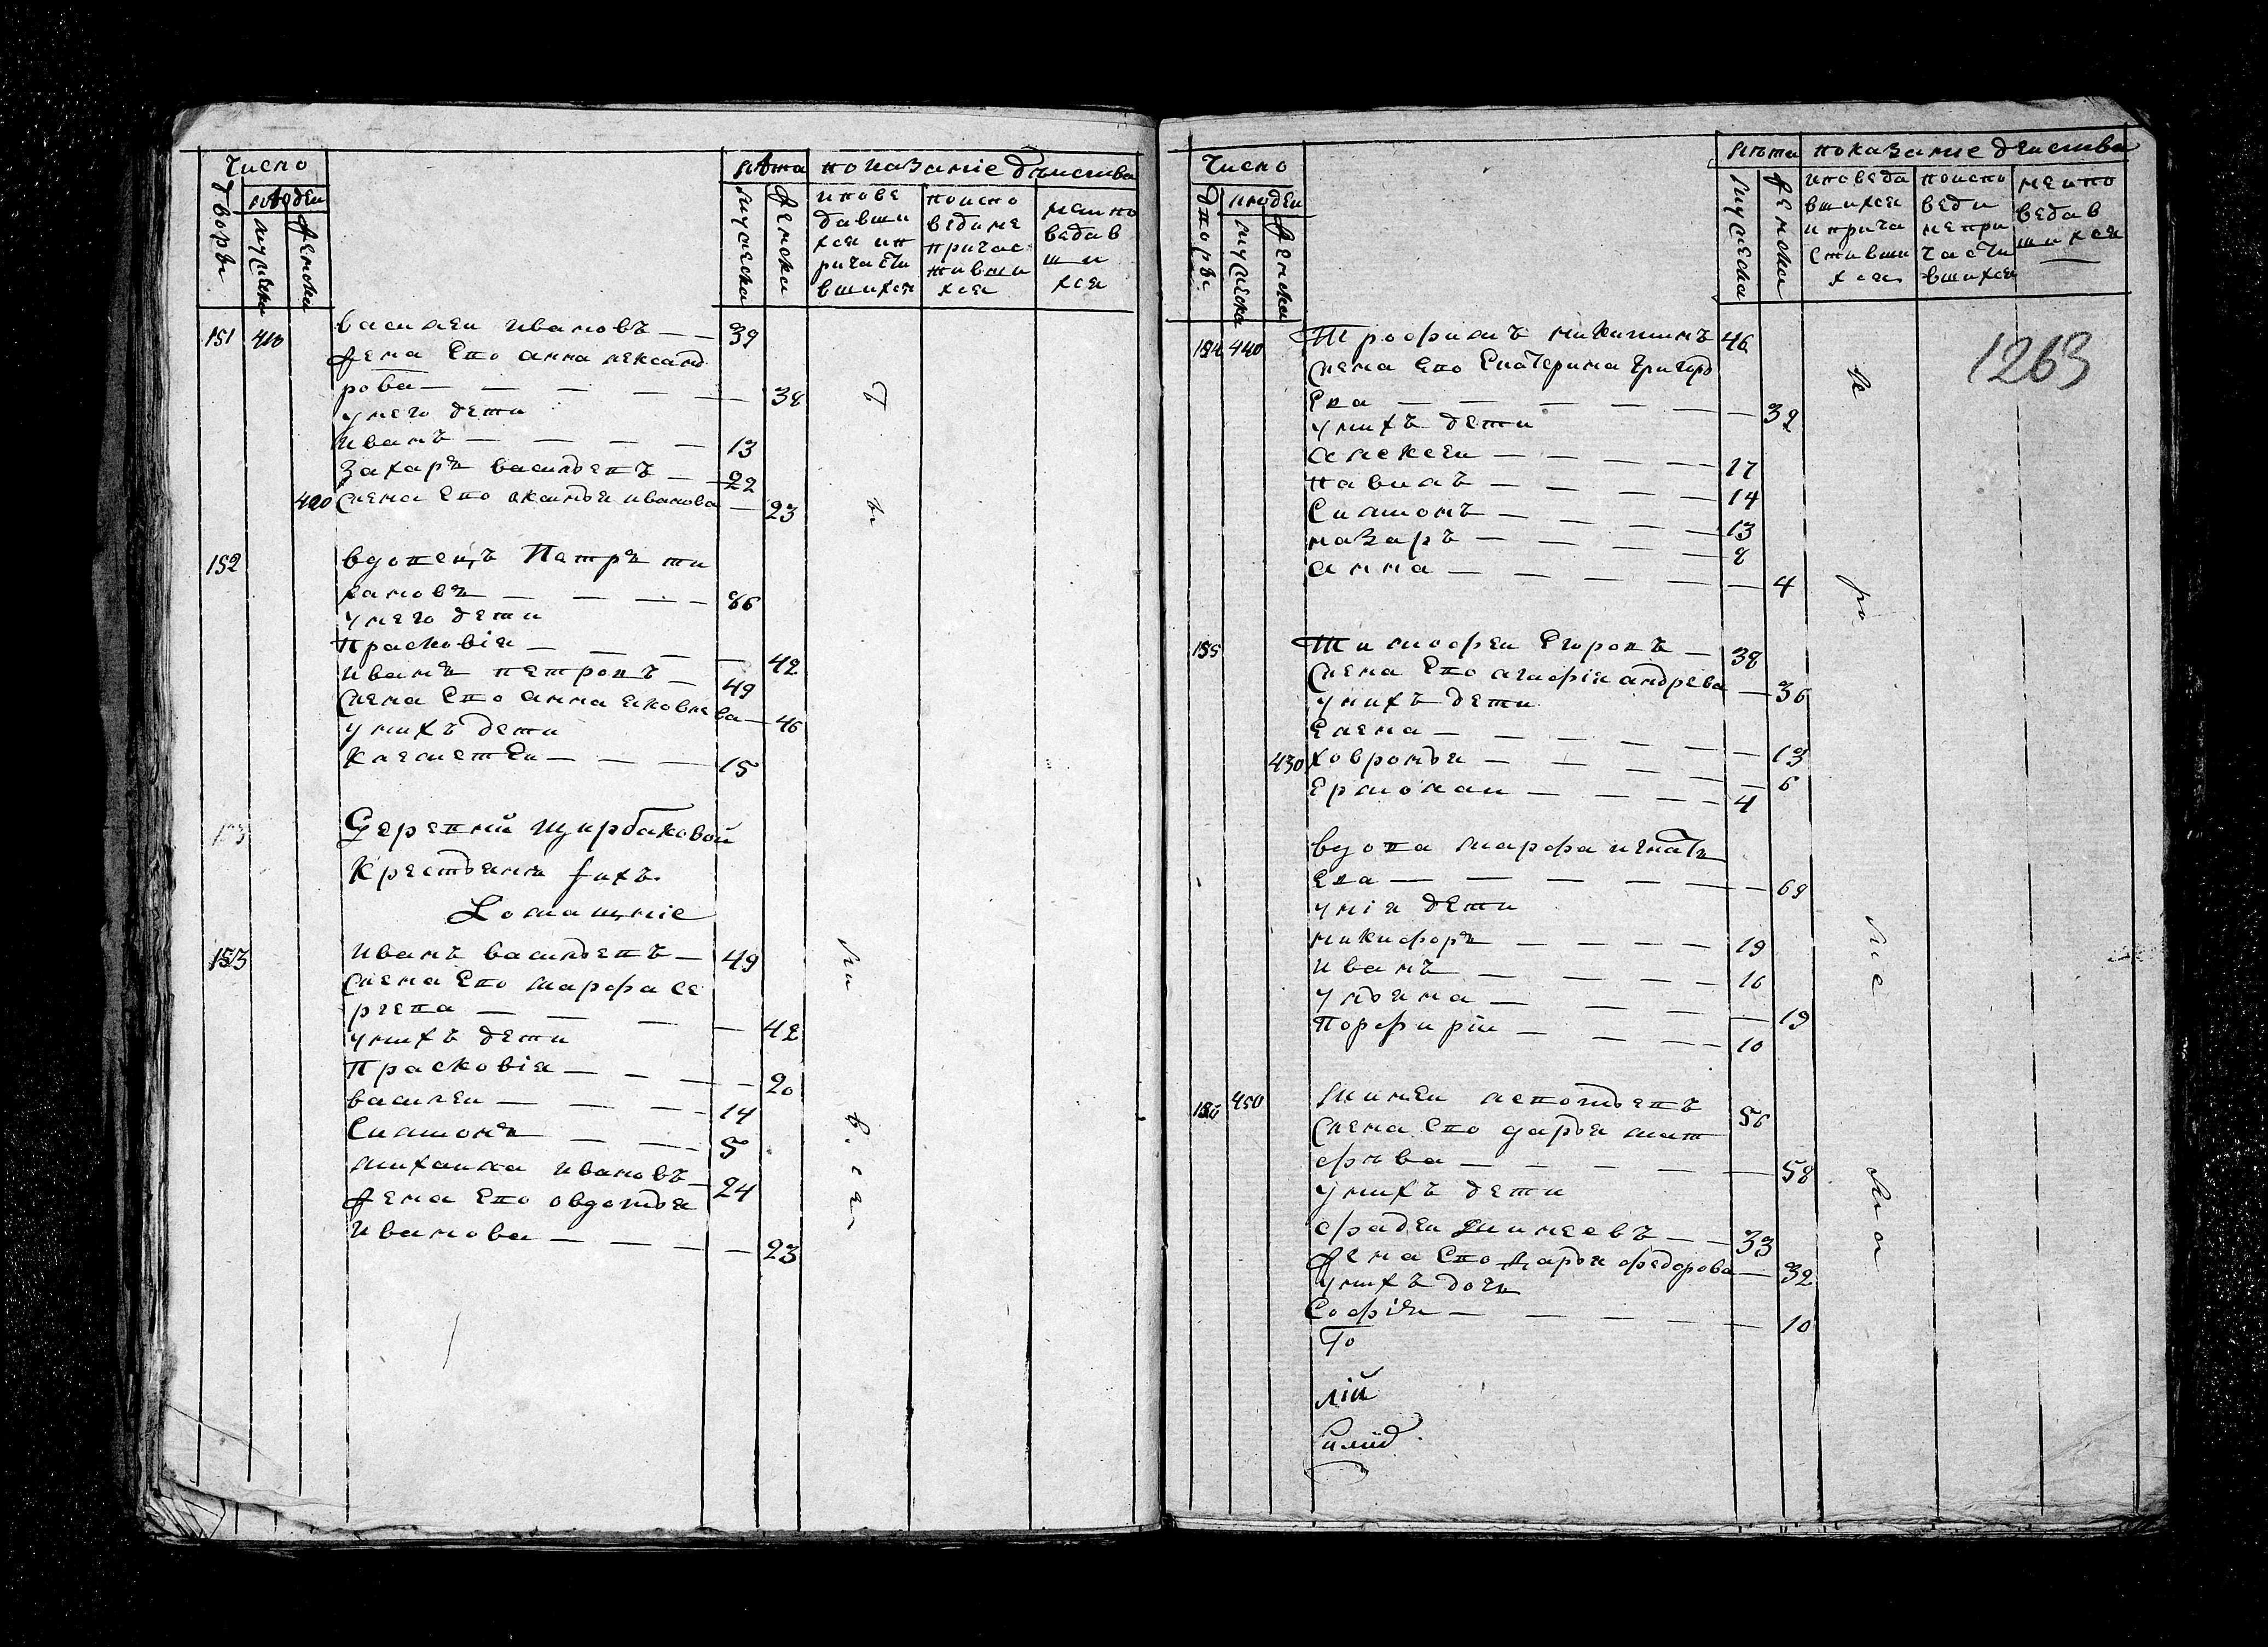 Число
лѣта показаніе дѣиства
дворы
людеи
мужеска
женска
мужеска
женска
испове
давши
хся ип
ричасти
вшихся
поиспо
ведине
причас
тивши
хся
неиспо
ведав
ши
хся
151 410 василеи ивановъ — 39
жена Ево анна лександ
рова — 38
унего дети
иванъ — 13
Захаръ васильевъ — 22
420 жена Ево иванова — 23
152 вдовецъ Петръ ти
хановъ — 86
унего дети
Прасковія — 42
иванъ петровъ — 49
жена Ево анна яковлева — 46
унихъ дети
Клементеи — 15
Деревни Щирбаковой
Крестьяня ихъ
Домашніе
153 иванъ васильевъ — 49
жена Ево марфа се
ргева — 42
унихъ дети
Прасковія — 20
василеи — 14
Симионъ — 5
михаила ивановъ — 24
жена Ево овдотья
иванова — 23
Число
лѣта показаніе дѣиства
дворы
людеи
мужеска
женска
мужеска
женска
исповеда
вшихся
иприча
стивши
хся
поиспо
веди
непри
части
вшихся
неиспо
ведав
шихся
1263
154 440 Трофимъ никитинъ 46
жена Ево Екатерина Григорь
Ева — 39
унихъ дети
алексеи — 17
павилъ — 14
Симионъ — 13
назаръ — 8
анна — 4
155 Тимофеи Егоровъ — 38
жена Ево агафія андрева — 36
унихъ дети
Елена — 13
430 ховронья — 6
Ермолаи — 4
вдова марфа игнать
Ева — 69
унія дети
никифоръ — 19
иванъ — 16
ульяна — 19
Порфирїи — 10
156 450 Минеи 56
жена Ево дарья мат
фѣва — 58
унихъ дети
фадеи Минеевъ — 33
жена Ево дарья федорова — 32
унихъ дочь
Софія — 10
То
лій